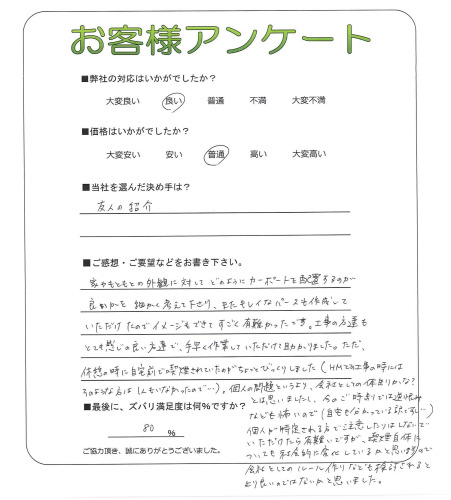 お客様アンケート
■弊社の対応はいかがでしたか？
大変良い 良い 普通 不満 大変不満
■価格はいかがでしたか？
大変安い 安い 普通 高い 大変高い
■当社を選んだ決め手は？
友人の紹介
■ご感想・ご要望などをお書き下さい。
家やもともとの外観に対してどのようにカーポートを配置するのが
良いかを細かく考えて下さり、またキレイなパースも作成して
いただけたのでイメージもできてすごく有難かったです。工事の方達も
とても感じの良い方達で、手早く作業していただけて助かりました。ただ、
休憩の時に自宅前で喫煙されていたのがちょっとびっくりしました（HMでの工事の時には
そのような方は1人もいなかったので…）。個人の問題というより、会社としての体制かな？
とは思いましたし、今のご時勢では逆恨み
なども怖いので（自宅も分かっている訳ですし…）
個人が特定される方で注意したりはしないで
いただけたら有難いですが、喫煙自体に
ついても社会的に変化しているかと思いますので
会社としてのルール作りなども検討されると
より良いのではないかと思いました。
■最後に、ズバリ満足度は何％ですか？
80 ％
ご協力頂き、誠にありがとうございました。